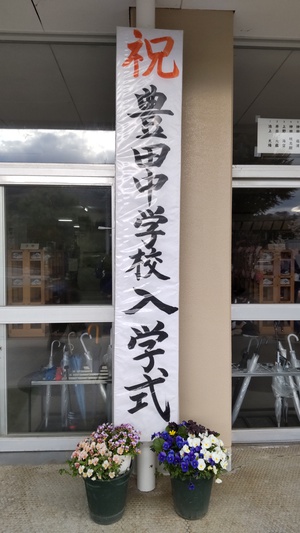 祝 豊田中学校入学式